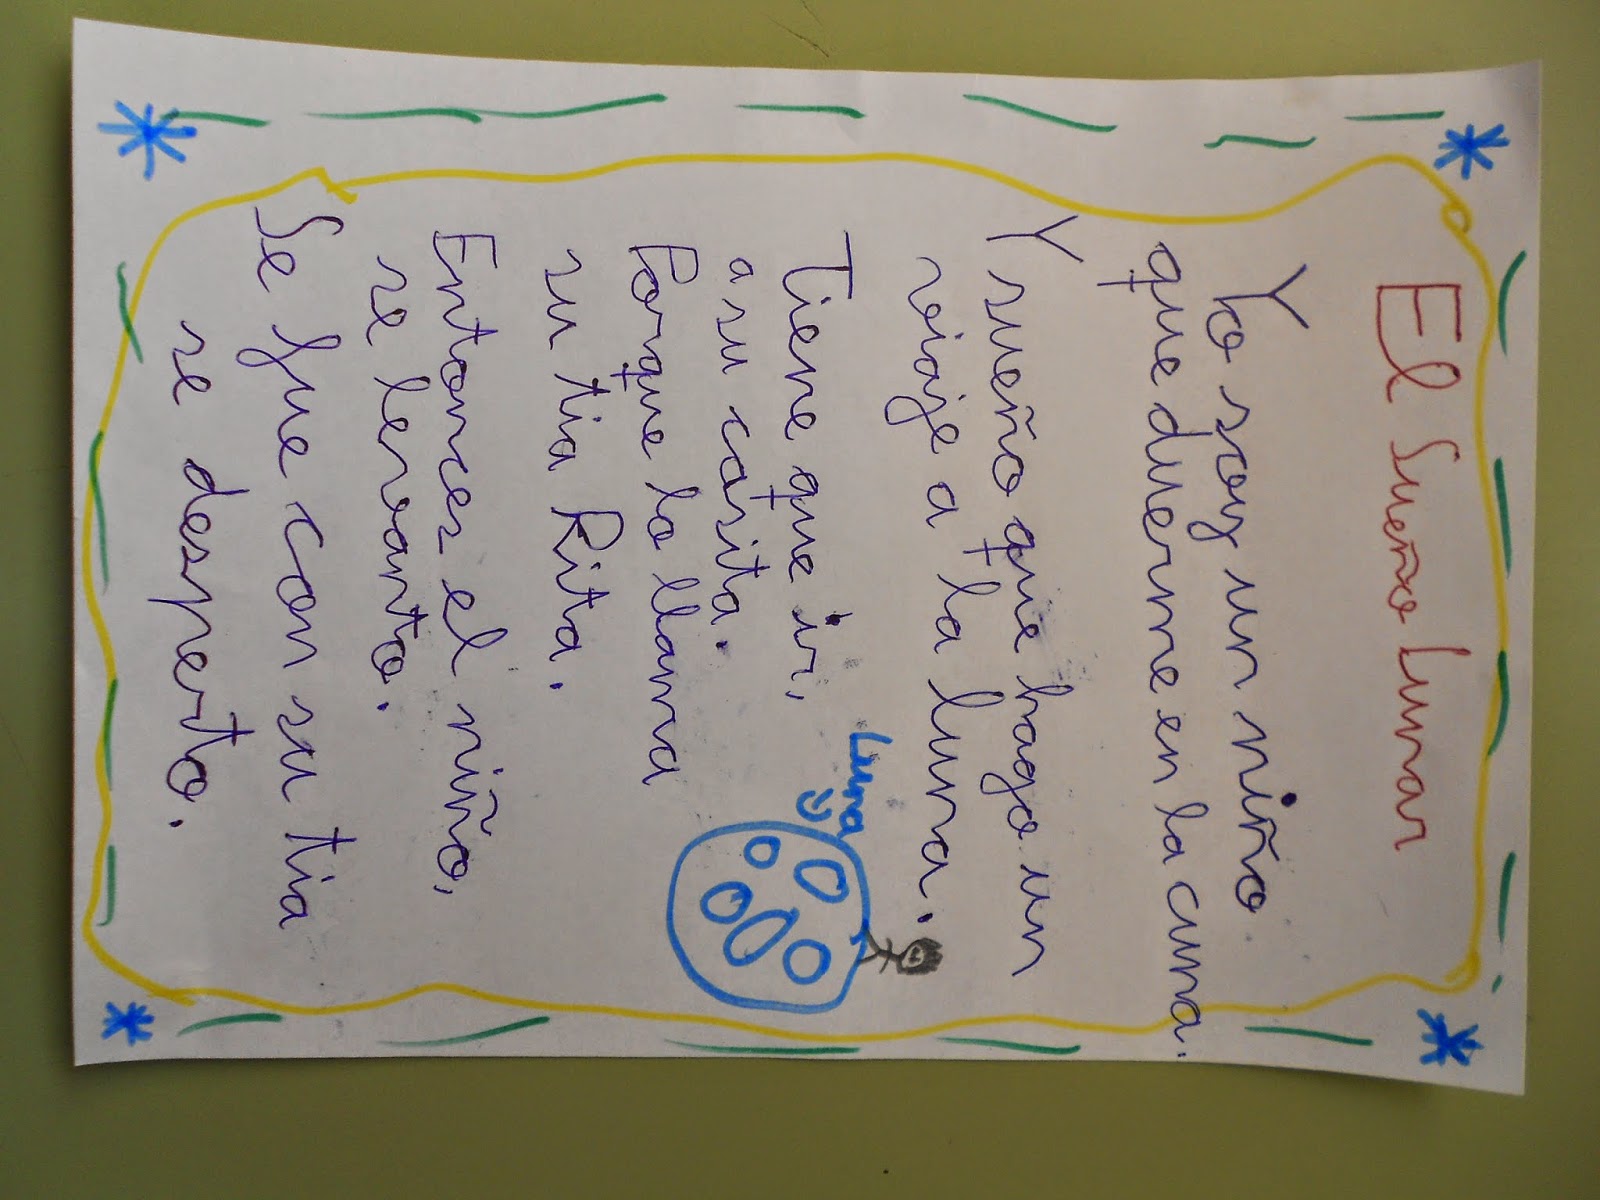 El Sueño Lunar
Yo soy un niño
que duerme en la cuna.
Y sueño que hago un
viaje a la luna.
Tiene que ir,
a su casita.
Porque lo llama
su tia Rita.
Luna
Entonces el niño,
se levanto.
Se fue con su tia
se desperto.